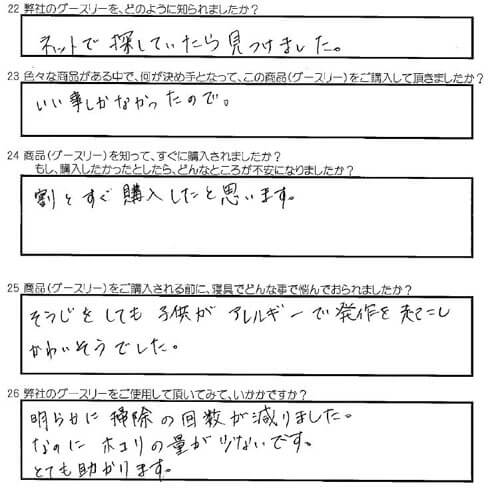 22 弊社のグースリーを、どのように知られましたか？
ネットで探していたら見つけました。
23 色々な商品がある中で、何が決め手となって、この商品（グースリー）をご購入して頂きましたか？
いい事しかなかったので。
24 商品（グースリー）を知って、すぐに購入されましたか？
もし、購入したかったとしたら、どんなところが不安になりましたか？
割とすぐ購入したと思います。
25 商品（グースリー）をご購入される前に、寝具でどんな事で悩んでおられましたか？
そうじをしても子供がアレルギーで発作を起こし
かわいそうでした。
26 弊社のグースリーをご使用して頂いてみて、いかがですか？
明らかに掃除の回数が減りました。
なのにホコリの量が少ないです。
とても助かります。